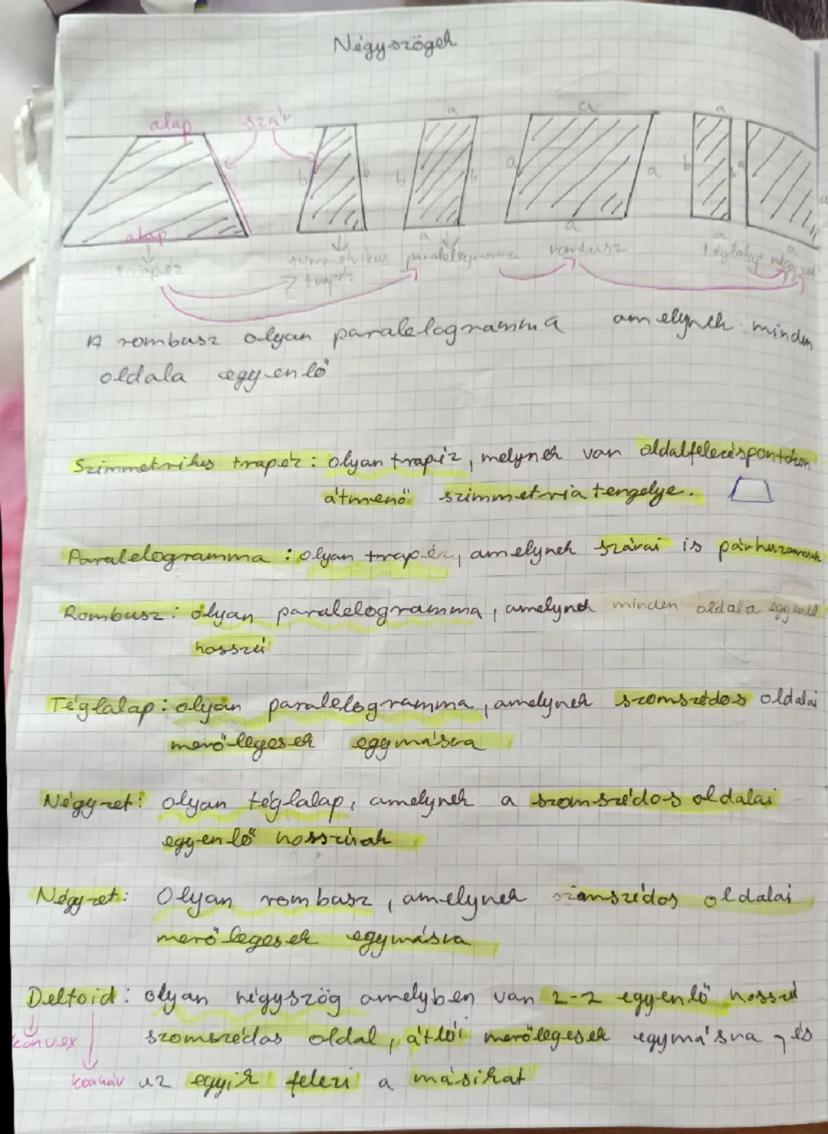 Négyszögek
alap szár
a a a
b b b b a a b b a a
alap a a a a
trapéz szimmetrikus trapéz paralelogramma rombusz téglalap négyzet
A rombusz olyan paralelogramma amelynek minden
oldala egyenlő
Szimmetrikus trapéz: olyan trapéz, melynek van oldalfelezéspontokon
átmenő szimmetria tengelye.
Paralelogramma: olyan trapéz, amelynek szárai is párhuzamosak
Rombusz: olyan paralelogramma, amelynek minden oldala egyenlő
hosszú
Téglalap: olyan paralelogramma, amelynek szomszédos oldalai
merőlegesek egymásra
Négyzet: olyan téglalap, amelynek a szomszédos oldalai
egyenlő hosszúak
Négyzet: Olyan rombusz, amelynek szomszédos oldalai
merőlegesek egymásra
Deltoid: olyan négyszög amelyben van 2-2 egyenlő hosszú
konvex szomszédos oldal, átlói merőlegesek egymásra, és
konkáv az egyik felezi a másikat